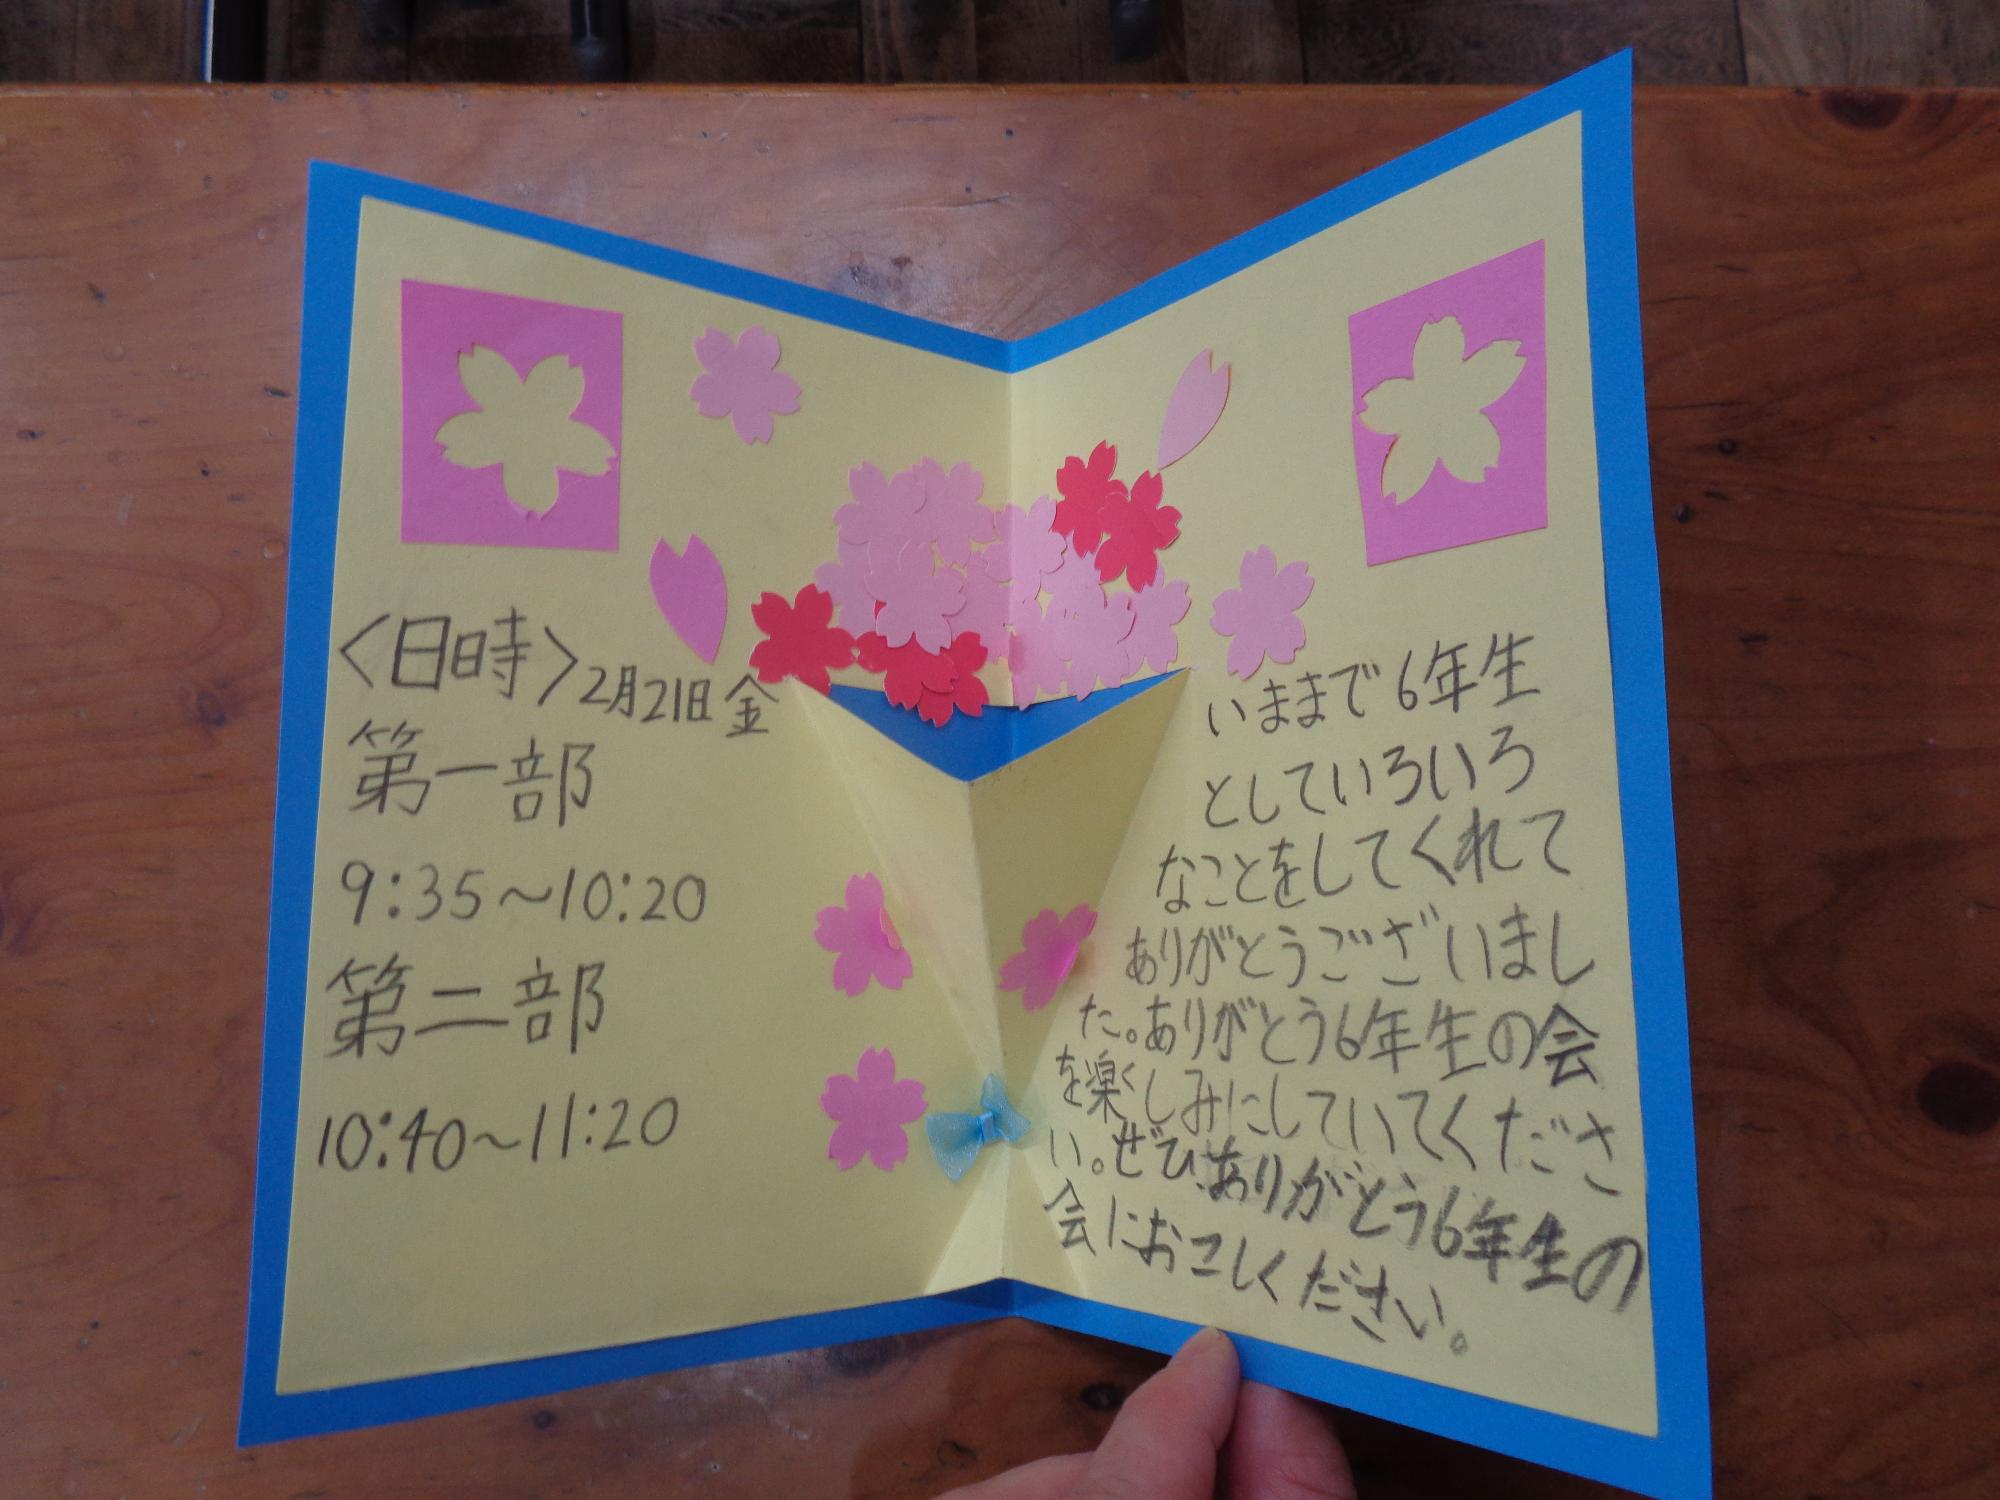 〈日時〉2月21日金
第一部
9:35～10:20
第二部
10:40～11:20
いままで6年生
としていろいろ
なことをしてくれて
ありがとうございまし
た。ありがとう6年生の会
を楽くしみにしていてくださ
い。ぜひ、ありがとう6年生の
会におこしください。